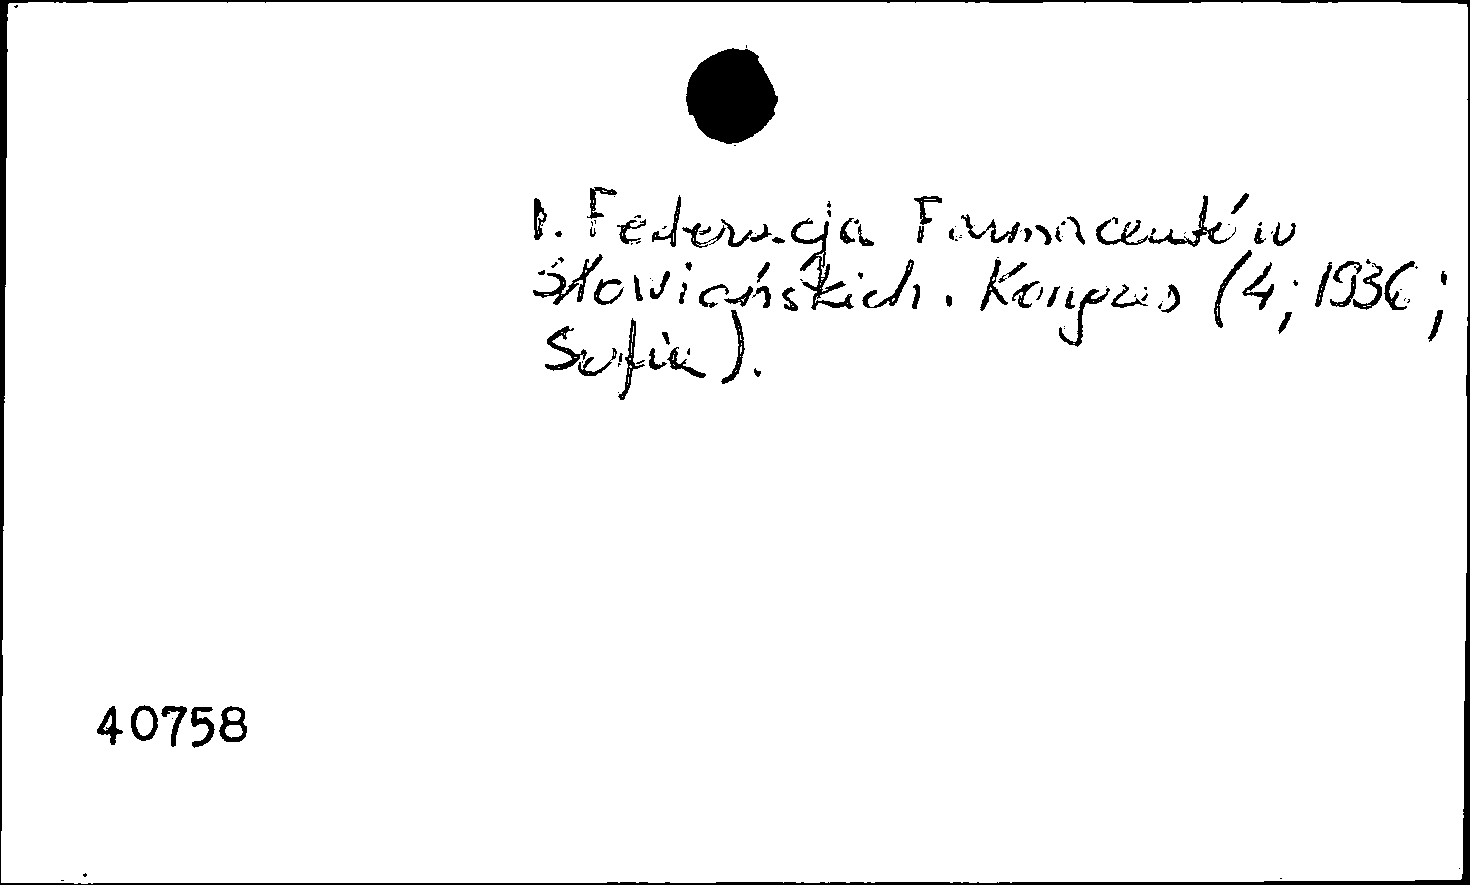 1. Federacja Farmaceutów
Słowiańskich. Kongres (4; 1936;
Sofia).
40758